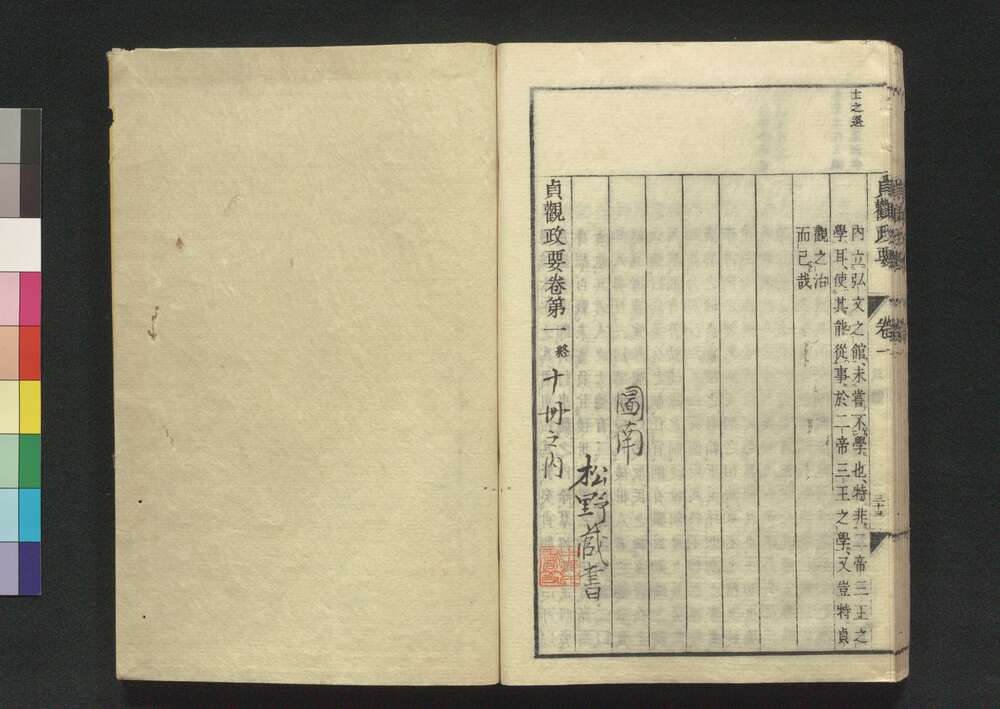 士之選
貞觀政要
卷一
三十三
內立弘文之館未嘗不學也特非二帝三王之
學耳使其能從事於二帝三王之學又豈特貞
觀之治
而已哉
圖南
松野蔵書
貞觀政要卷第一終
十冊之內